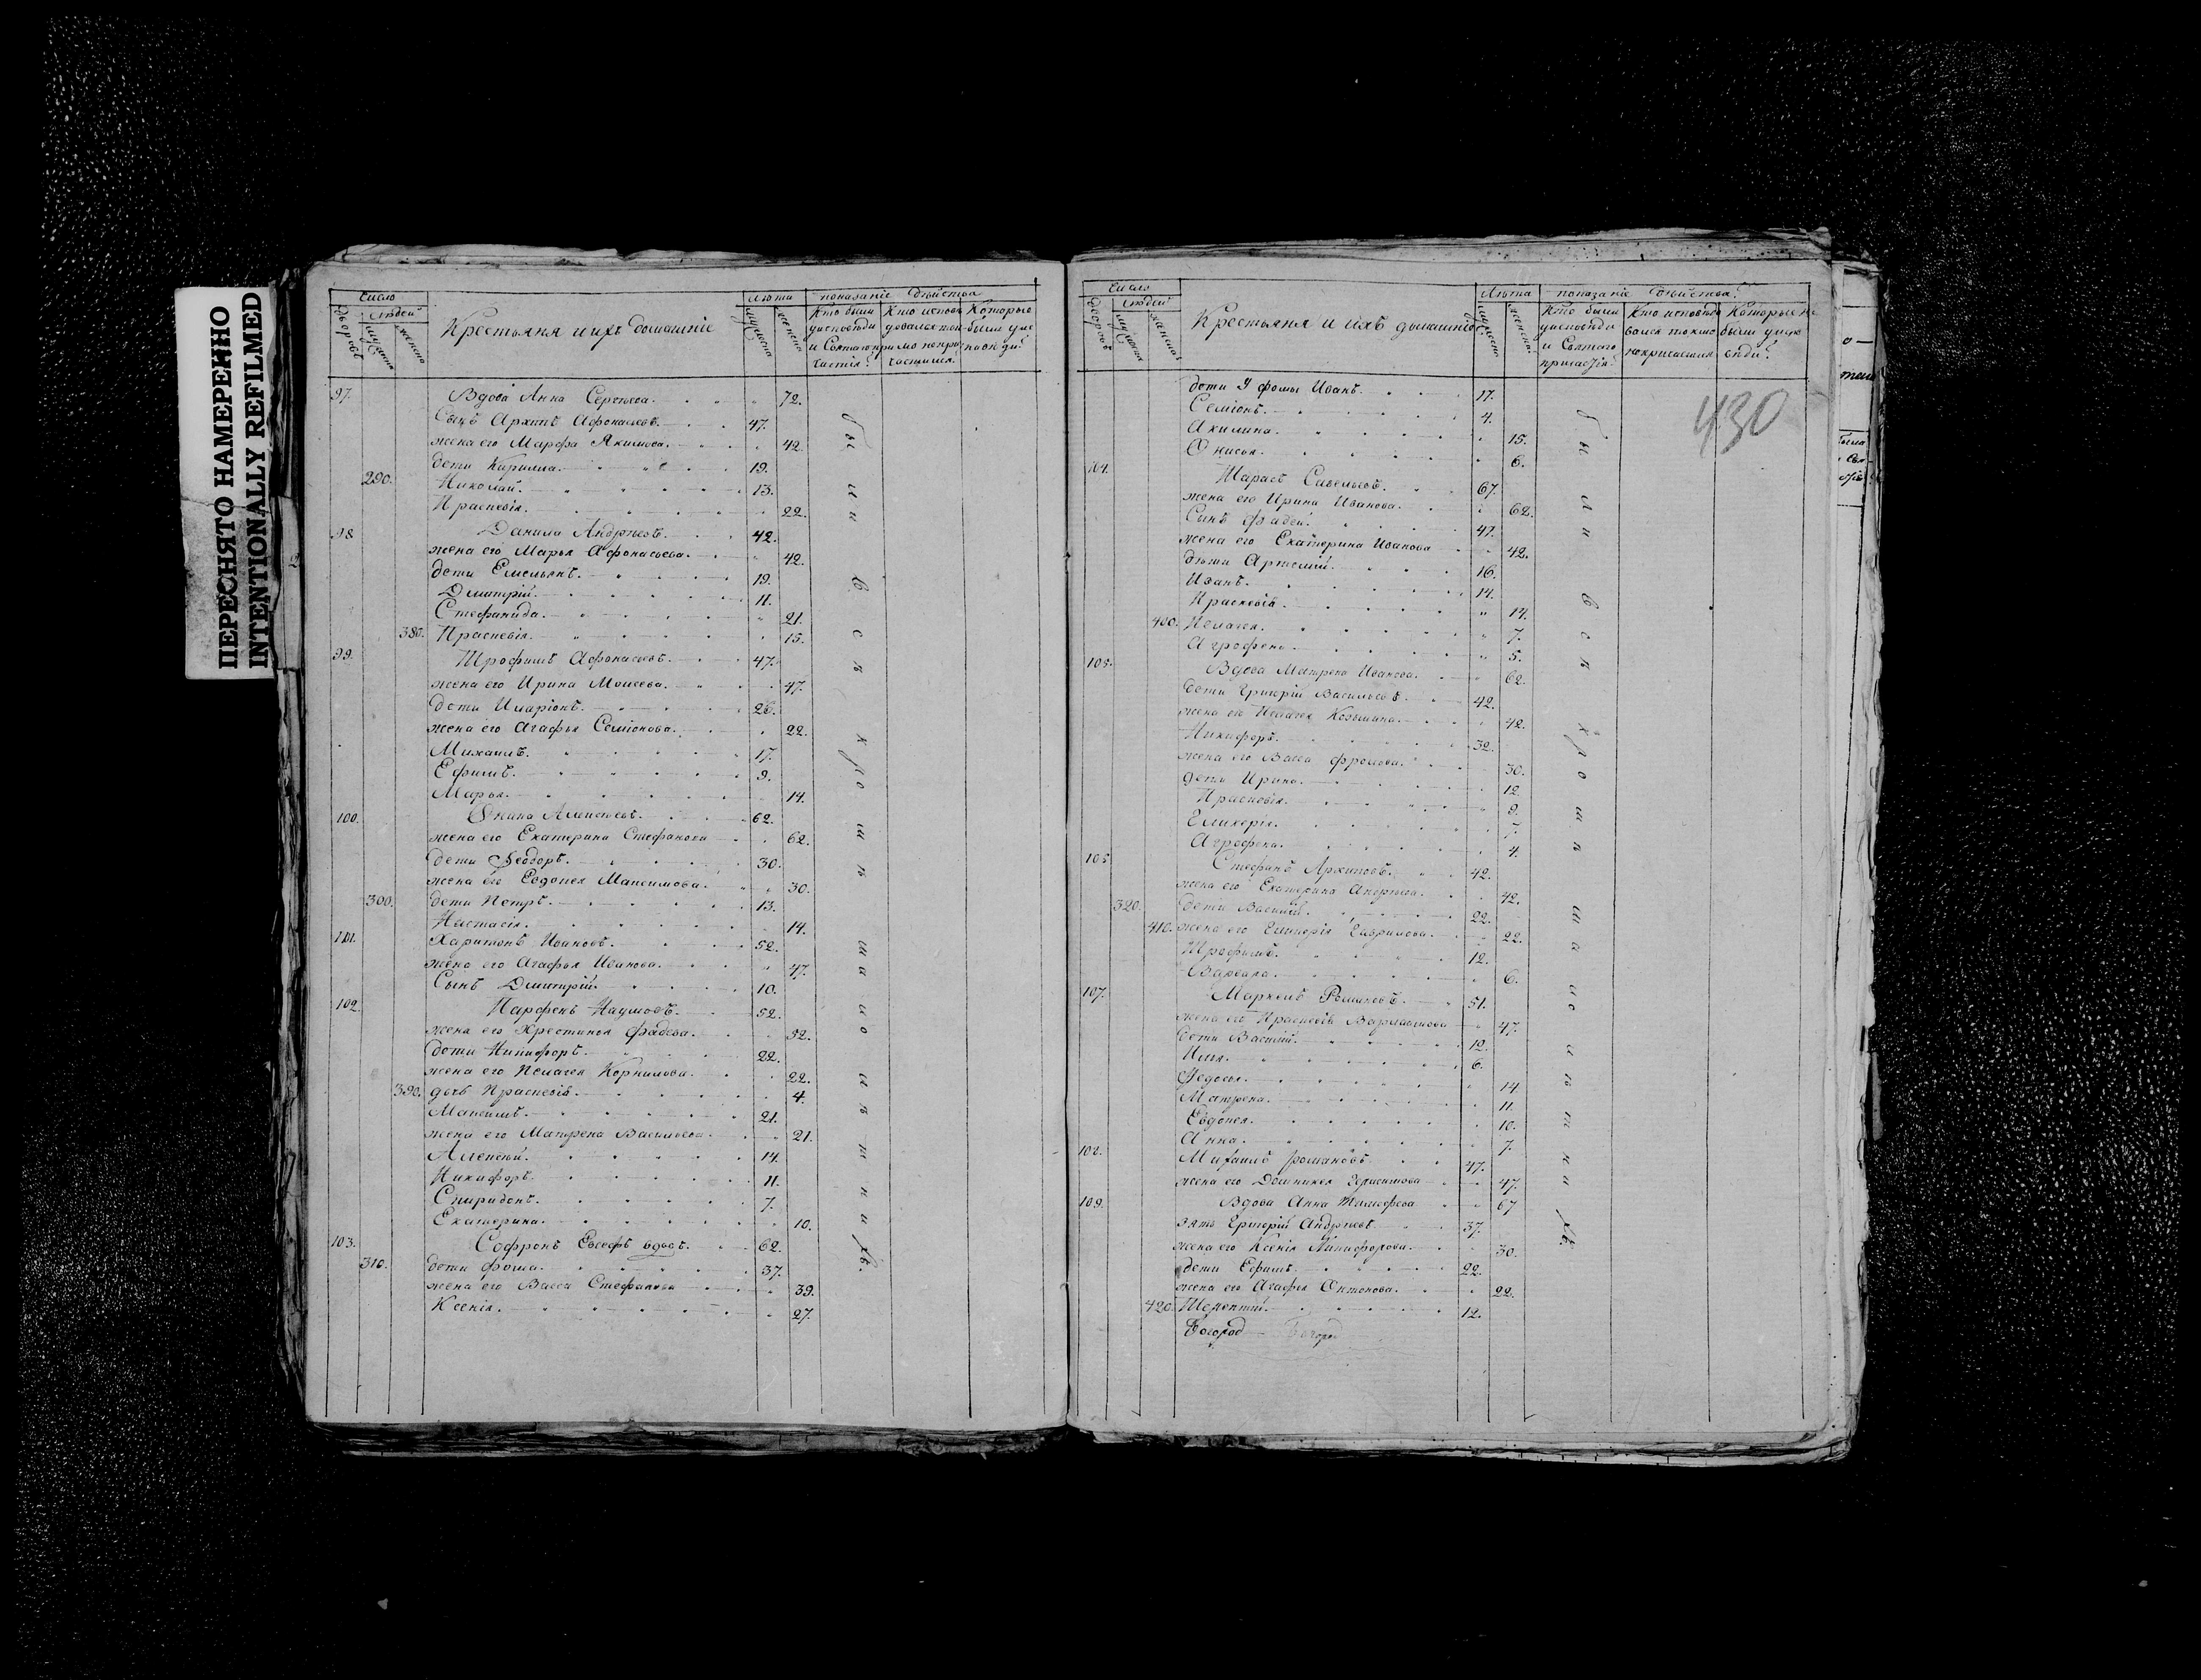 ПЕРЕСНЯТО НАМЕРЕННО
INTENTIONALLY REFILMED
Число
Людей
Дворовъ
мужска
женска
Крестьяня и ихъ домашніе
Лѣта
мужска
женска
показаніе дѣйства
Кто были
Которые
97. Вдова Анна Сергѣева. 72.
Сынъ Архипъ Афонасьевъ. 47.
жена его Марфа Якимова. 42.
дети Кирилла. 19.
290. Николай. 13.
Прасковія. 22.
98. Данила Андрѣевъ. 42.
жена его Марья Афонасьева. 42.
дети Емельянъ. 19.
Дмитрій. 11.
Стефанида. 21.
380. Прасковія. 15.
99. Трофимъ Афонасьевъ. 47.
жена его Ирина Моисеева. 47.
дети Иларіонъ. 26.
жена его Агафья Семіонова. 22.
Михаилъ. 17.
Ефимъ. 9.
Марья. 14.
100. Алексѣевъ. 62.
жена его Екатерина Стефанова 62.
дети Феодоръ. 30.
жена его Евдокея Максимова. 30.
300. дети Петръ. 13.
Настасія. 14.
101. Харитонъ Ивановъ. 52.
жена его Агафья Иванова. 47.
Сынъ Дмитрій. 10.
102. Парфенъ Наумовъ. 52.
жена его Хрестинья Фадеева. 52.
дети Никифоръ. 22.
жена его Пелагея Корнилова. 22.
390. дочь Прасковія. 4.
Максимъ. 21.
жена его Матрена Васильева. 21.
Алексѣй. 14.
Никифоръ. 11.
Спиридонъ. 7.
Екатерина. 10.
103. Софронъ вдовъ. 62.
310. дети Фома. 37.
жена его Васса Стефанова 39.
Ксенія. 27.
были
Число
Людей
Дворовъ
мужска
женска
Крестьяня и ихъ домашніе
Лѣта
мужска
женска
показаніе дѣйства
Кто были
и Святаго
430
дети У Фомы Иванъ. 17.
Семіонъ. 4.
Акилина. 15.
Онисья. 6.
104. Тарасъ Савельевъ. 67.
жена его Ирина Иванова. 62.
Сынъ Фадей. 47.
жена его Екатерина Иванова 42.
дѣти Артемій. 16.
Иванъ. 14.
Прасковія. 14.
400. Пелагея. 7.
Агрофена. 5.
105. Вдова Матрена Иванова. 62.
дети Григорій Васильевъ. 42.
жена его Пелагея Козьмина. 42.
Никифоръ. 32.
жена его Васса Фролова. 30.
дети Ирина. 12
Прасковія. 9.
Гликерія. 7.
Агрофена. 4.
Стефанъ Архиповъ. 42.
жена его Екатерина Андрѣева. 42.
320. дети Василій. 22.
410. жена его Гликерія Гаврилова. 22.
Трофимъ. 12.
Варвара. 6.
107. Маркелъ Романовъ. 51.
жена его Прасковія Варлаамова 47.
дети Василій. 12.
Илья. 6.
Федосья. 14
Матрена. 11.
Евдокея. 10.
Анна. 7.
108. Михаилъ Романовъ. 47.
жена его Домникея 47.
109. Вдова Анна Тимофеева 67
зять Григорій Андрѣевъ. 37.
жена его Ксенія Никифорова. 30.
дети Ефимъ. 22.
жена его Агафья Антонова. 22.
420. Терентій. 12.
Богород
были